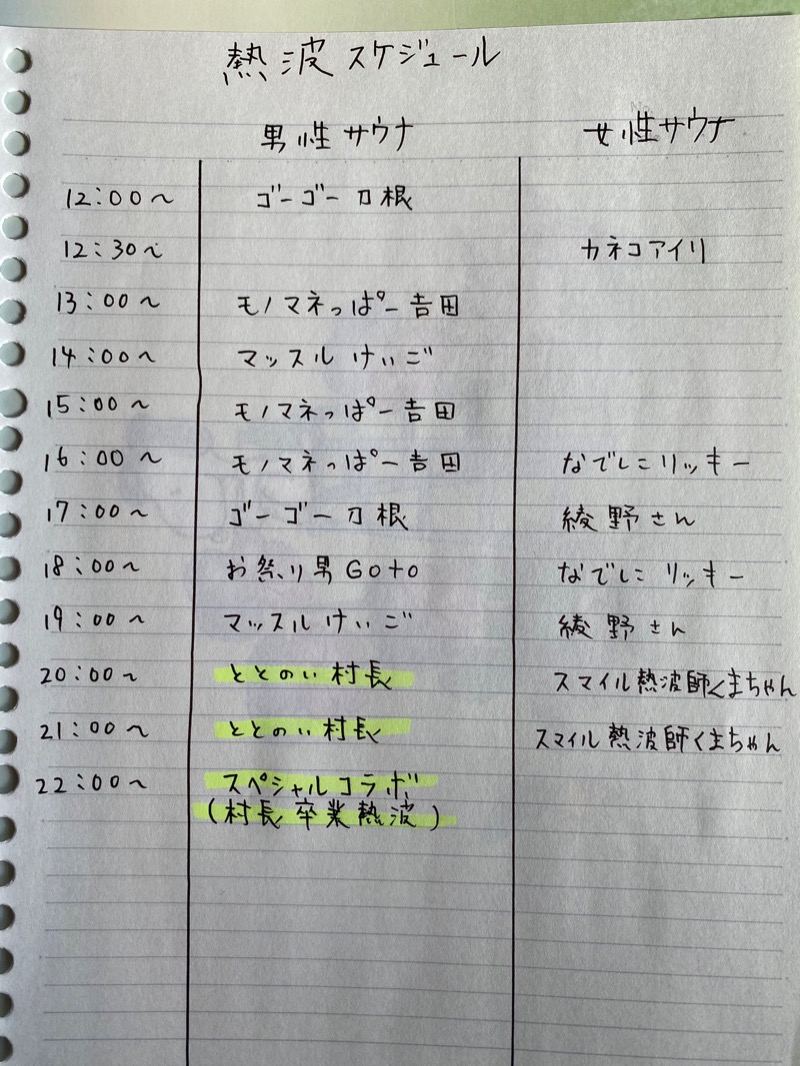 熱波スケジュール
男性サウナ 女性サウナ
12:00〜 ゴーゴー刀根
12:30〜 カネコアイリ
13:00〜 モノマネっぱー吉田
14:00〜 マッスルけいご
15:00〜 モノマネっぱー吉田
16:00〜 モノマネっぱー吉田 なでしこリッキー
17:00〜 ゴーゴー刀根 綾野さん
18:00〜 お祭り男GOTO なでしこリッキー
19:00〜 マッスルけいご 綾野さん
20:00〜 ととのい村長 スマイル熱波師くまちゃん
21:00〜 ととのい村長 スマイル熱波師くまちゃん
22:00〜 スペシャルコラボ
(村長卒業熱波)